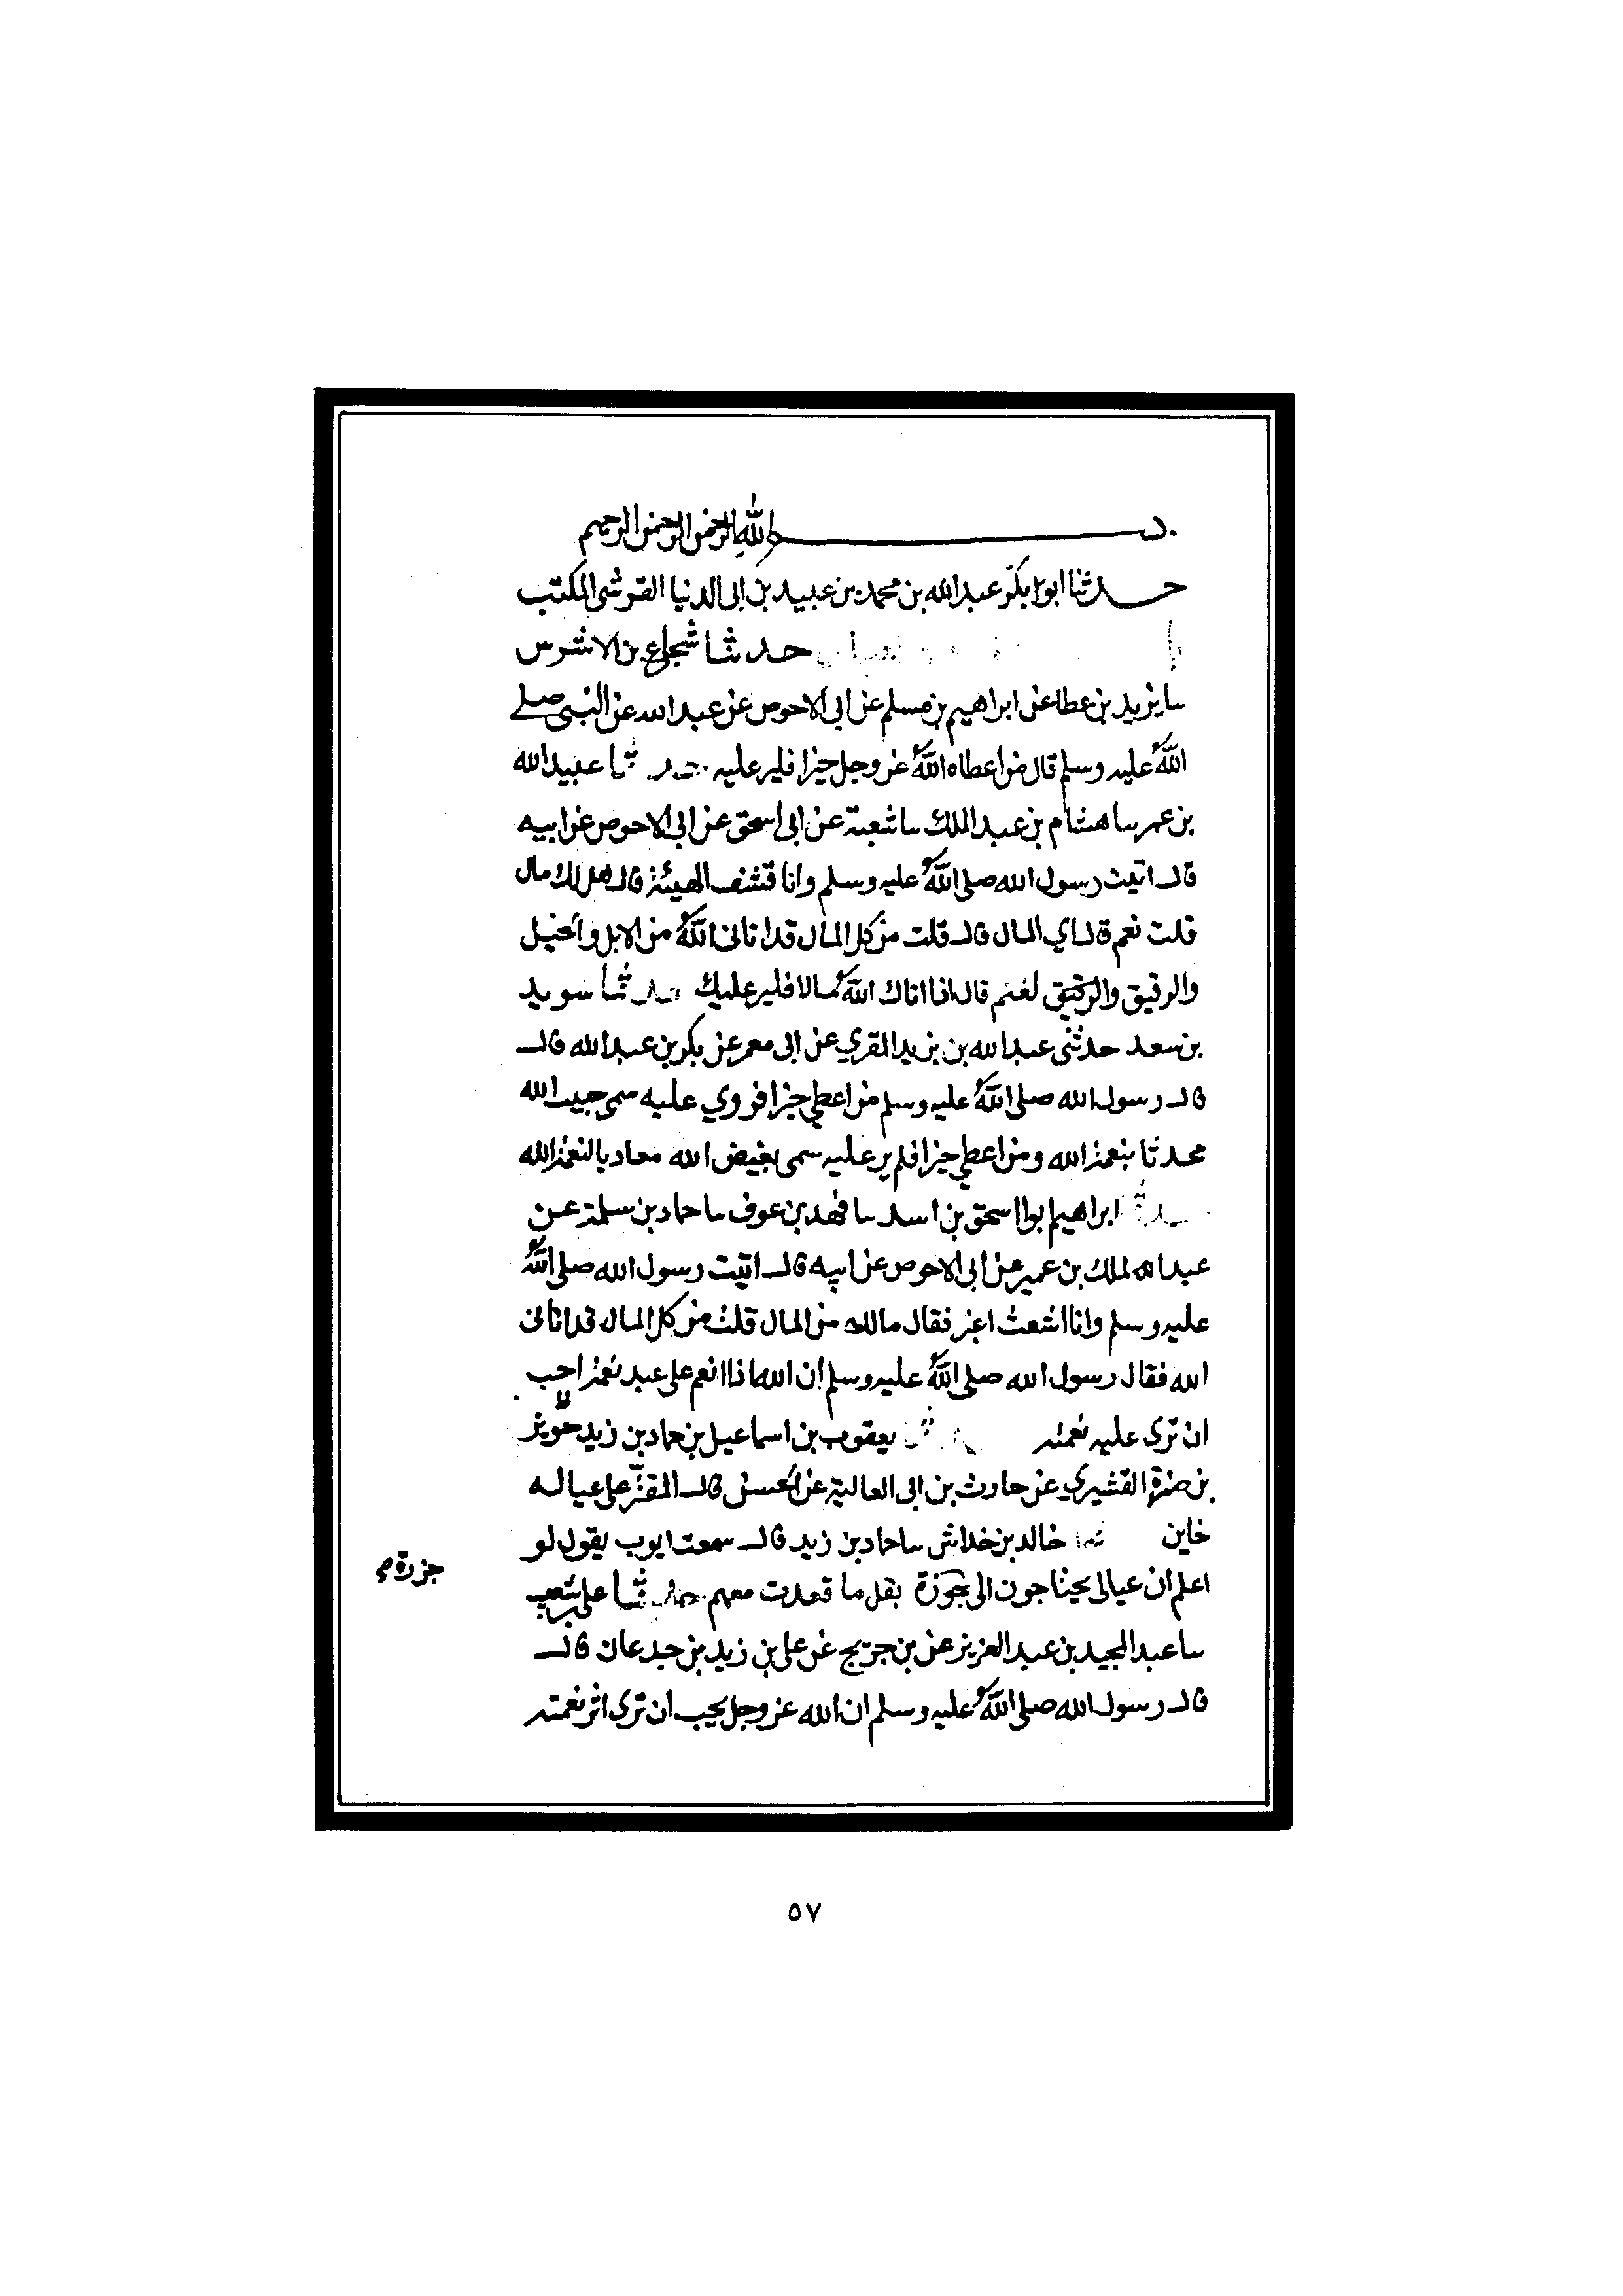 بسم الله الرحمن الرحيم
حدثنا ابو بكر عبد الله بن محمد بن عبيد بن ابى الدنيا القرشى المكتب
حدثنا شجاع بن الاشرس
سا يزيد بن عطا عن ابراهيم بن مسلم عن ابى الاحوص عن عبد الله عن النبى صلى
الله عليه وسلم قال من اعطاه الله عز وجل خيرا فلير عليه حدثنا عبيد الله
بن عمر سا هشام بن عبد الملك سا شعبة عن ابى اسحق عن ابى الاحوص عن ابيه
قال اتيت رسول الله صلى الله عليه وسلم وانا قشف الهيئة قال هل لك مال
قلت نعم قال اي المال قال قلت من كل المال قد اتانى الله من الابل والخيل
والرقيق والرقيق لغنم قال اذا اتاك الله مالا فلير عليك حدثنا سويد
بن سعد حدثنى عبد الله بن يزيد المقري عن ابى معمر عن بكر بن عبد الله قال
قال رسول الله صلى الله عليه وسلم من اعطي خيرا فروي عليه سمى حبيب الله
محدثا بنعمة الله ومن اعطي خيرا فلم ير عليه سمى بغيض الله معاديا لنعمة الله
ابراهيم ابو اسحق بن اسد سا فهد بن عوف سا حماد بن سلمة عن
عبد الملك بن عمير عن ابى الاحوص عن ابيه قال اتيت رسول الله صلى الله
عليه وسلم وانا اشعث اغبر فقال مالك من المال قلت من كل المال قد اتانى
الله فقال رسول الله صلى الله عليه وسلم ان الله اذا انعم على عبد نعمة احب
ان ترى عليه نعمته يعقوب بن اسماعيل بن حماد بن زيد
بن ضمرة القشيري عن حارث بن ابى العالية عن الحسن قال المقتر على عياله
خاين ثنا خالد بن خداش سا حماد بن زيد قال سمعت ايوب يقول لو
اعلم ان عيالى يحتاجون الى جرزة بقل ما قعدت معهم حدثنا على بن شعيب
جزرة م
سا عبد المجيد بن عبد العزيز عن بن جريج عن على بن زيد بن جدعان قال
قال رسول الله صلى الله عليه وسلم ان الله عز وجل يحب ان ترى اثر نعمته
٥٧